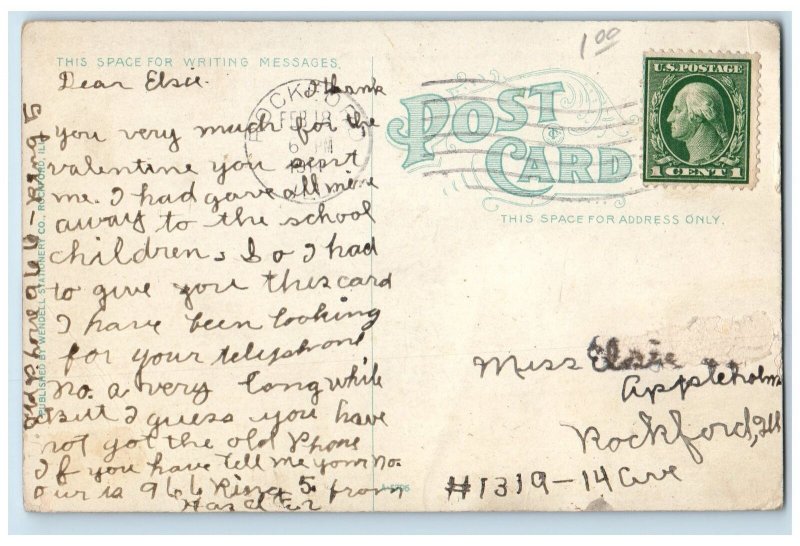 1 00
THIS SPACE FOR WRITING MESSAGES.
POST
CARD
U.S. POSTAGE
1 CENT 1
THIS SPACE FOR ADDRESS ONLY.
FEB 18
6 PM
Dear Elsie. I thank
you very much for the
valentine you sent
me. I had gave all mine
away to the school
children, So I had
to give you this card
I have been looking
for your telephone
no. a very long while
But I guess you have
not got the old Phone
If you have tell me your no.
our is 966 Ring 5. from
Miss Elsie
Appleholm
Rockford, Ill
#1319-14 Ave
PUBLISHED BY WENDELL STATIONERY CO., ROCKFORD, ILL.
966-Ring 5